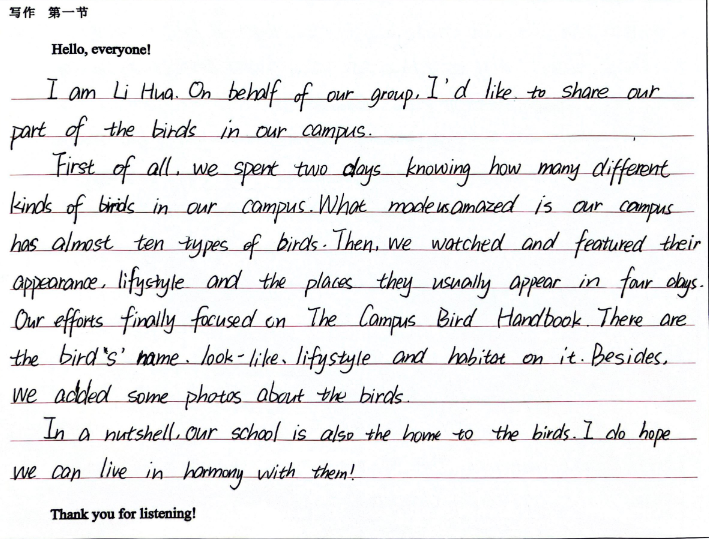 写作 第一节
Hello, everyone!
I am Li Hua. On behalf of our group, I'd like to share our
part of the birds in our campus.
First of all, we spent two days knowing how many different
kinds of birds in our campus. What made us amazed is our campus
has almost ten types of birds. Then, we watched and featured their
appearance, lifystyle and the places they usually appear in four days.
Our efforts finally focused on The Campus Bird Handbook. There are
the bird's' name、look-like、lifystyle and habitat on it. Besides,
we added some photos about the birds.
In a nutshell, our school is also the home to the birds. I do hope
we can live in harmony with them!
Thank you for listening!